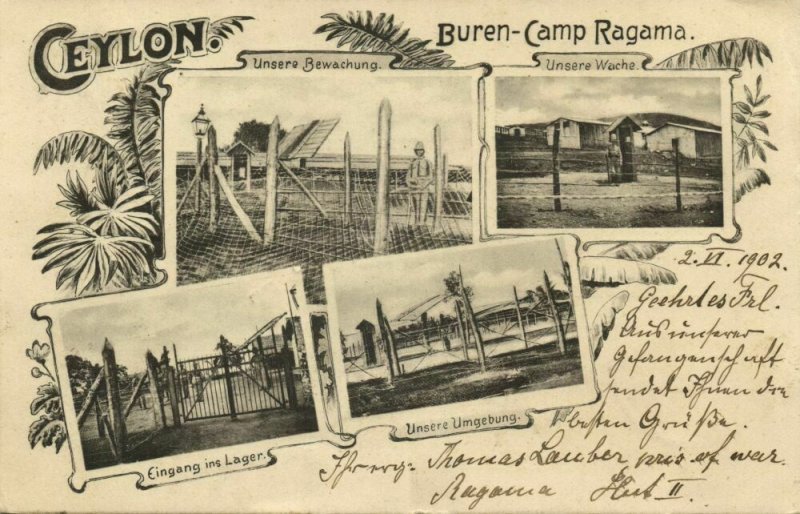 CEYLON.
Buren-Camp Ragama.
Unsere Bewachung.
Unsere Wache.
Eingang ins Lager.
Unsere Umgebung.
2. VI. 1902.
Geehrtes Frl.
Aus unserer
Gefangenschaft
sendet Ihnen die
besten Grüße.
Ihr erg. Thomas Lauber, pris of war.
Ragama Hut II.